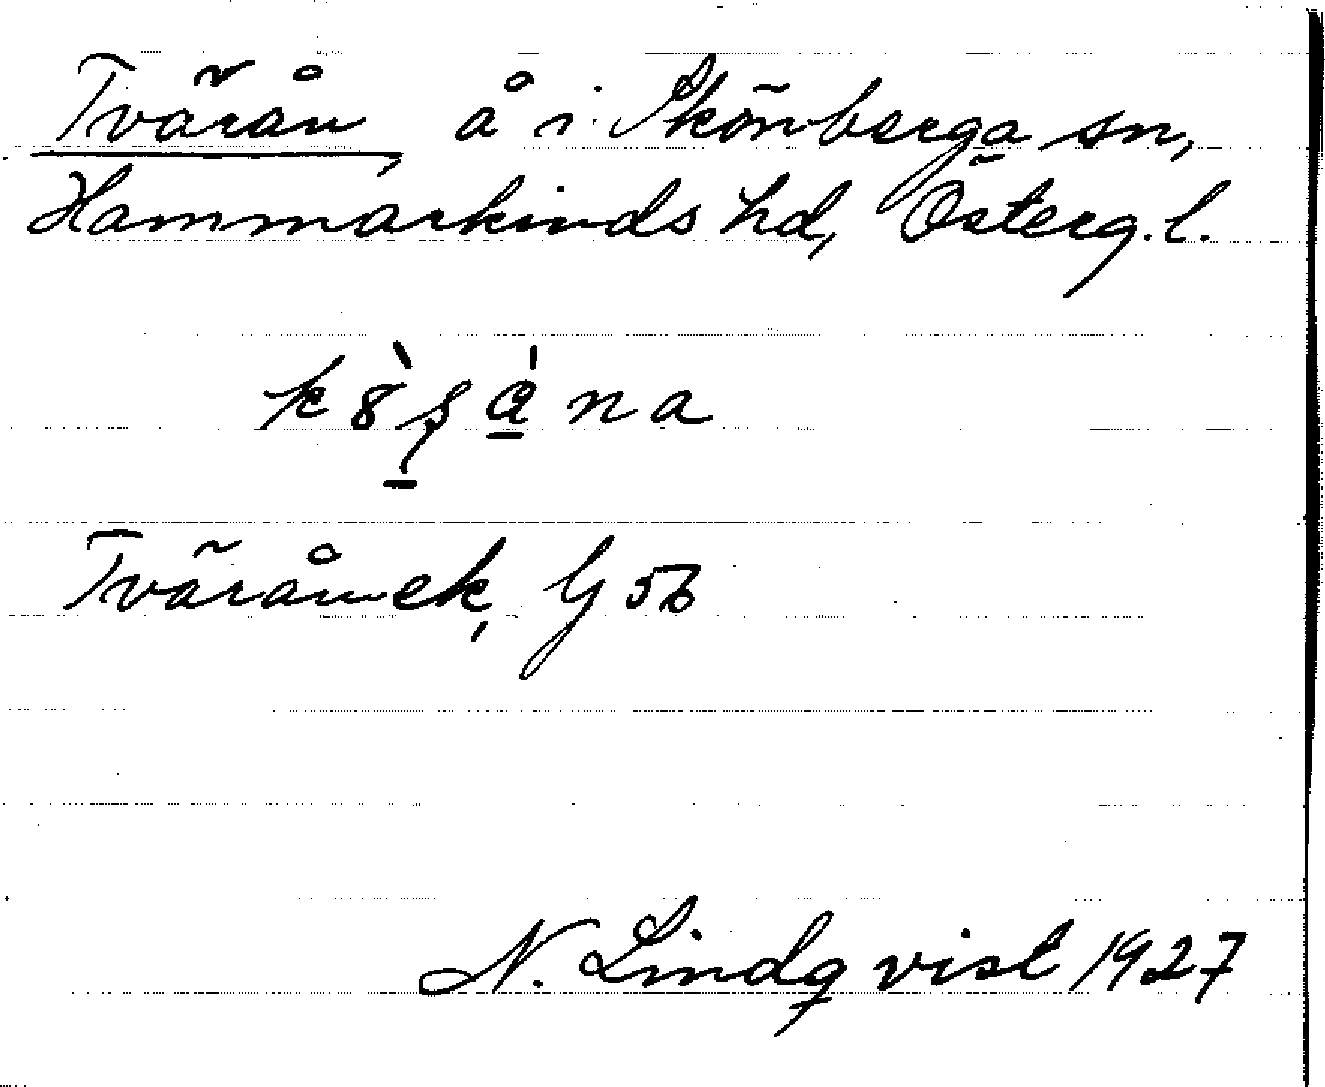 Tvärån, å i Skönberga sn,
Hammarkinds hd, Österg.l.
Tväråns ek, G 56
N. Lindqvist 1927